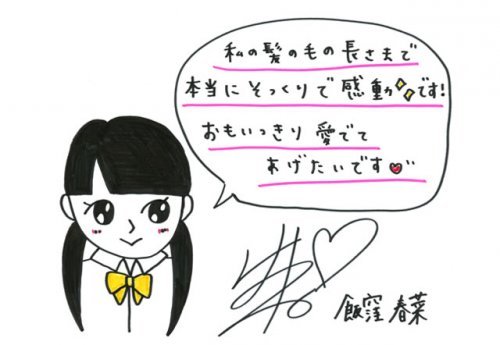 私の髪の毛の長さまで
本当にそっくりで感動です!
おもいっきり愛でて
あげたいです
飯窪 春菜